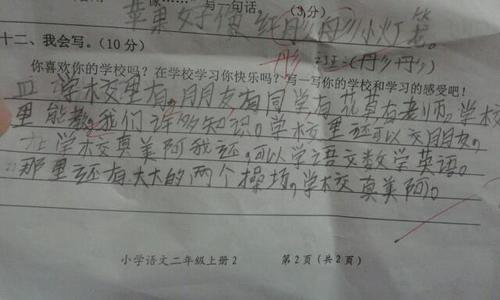 像……”写一句话。(3分)
苹果好像红彤彤小灯笼。
十二、我会写。(10分)
彤 订正:(彤彤)
你喜欢你的学校吗?在学校学习你快乐吗?写一写你的学校和学习的感受吧!
学校里有朋友有同学有花草有老师。学校
里能教我们许多知识。学校里还可以交朋友,
在学校真美阿我还可以学语文数学英语。
那里还有大大的两个操场,学校真美阿。
小学语文二年级上册2 第2页(共2页)